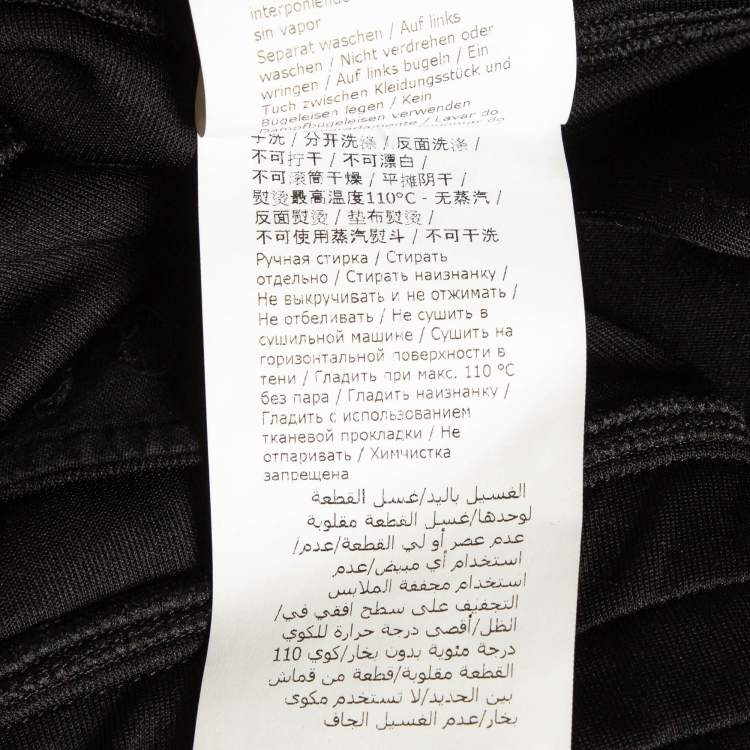 interponiendo
sin vapor
Separat waschen / Auf links
waschen / Nicht verdrehen oder
wringen / Auf links bügeln / Ein
Tuch zwischen Kleidungsstück und
Bügeleisen legen / Kein
Dampfbügeleisen verwenden
/ Lavar do
手洗 / 分开洗涤 / 反面洗涤 /
不可拧干 / 不可漂白 /
不可滚筒干燥 / 平摊阴干 /
熨烫最高温度110°C - 无蒸汽 /
反面熨烫 / 垫布熨烫 /
不可使用蒸汽熨斗 / 不可干洗
Ручная стирка / Стирать
отдельно / Стирать наизнанку /
Не выкручивать и не отжимать /
Не отбеливать / Не сушить в
сушильной машине / Сушить на
горизонтальной поверхности в
тени / Гладить при макс. 110 °C
без пара / Гладить наизнанку /
Гладить с использованием
тканевой прокладки / Не
отпаривать / Химчистка
запрещена
الغسيل باليد/غسل القطعة
لوحدها/غسل القطعة مقلوبة
عدم عصر أو لي القطعة/عدم/
استخدام أي مبيض/عدم
استخدام مجففة الملابس
التجفيف على سطح افقي في/
الظل/أقصى درجة حرارة للكوي
110 درجة مئوية بدون بخار/كوي
القطعة مقلوبة/قطعة من قماش
بين الحديد/لا تستخدم مكوى
بخار/عدم الغسيل الجاف